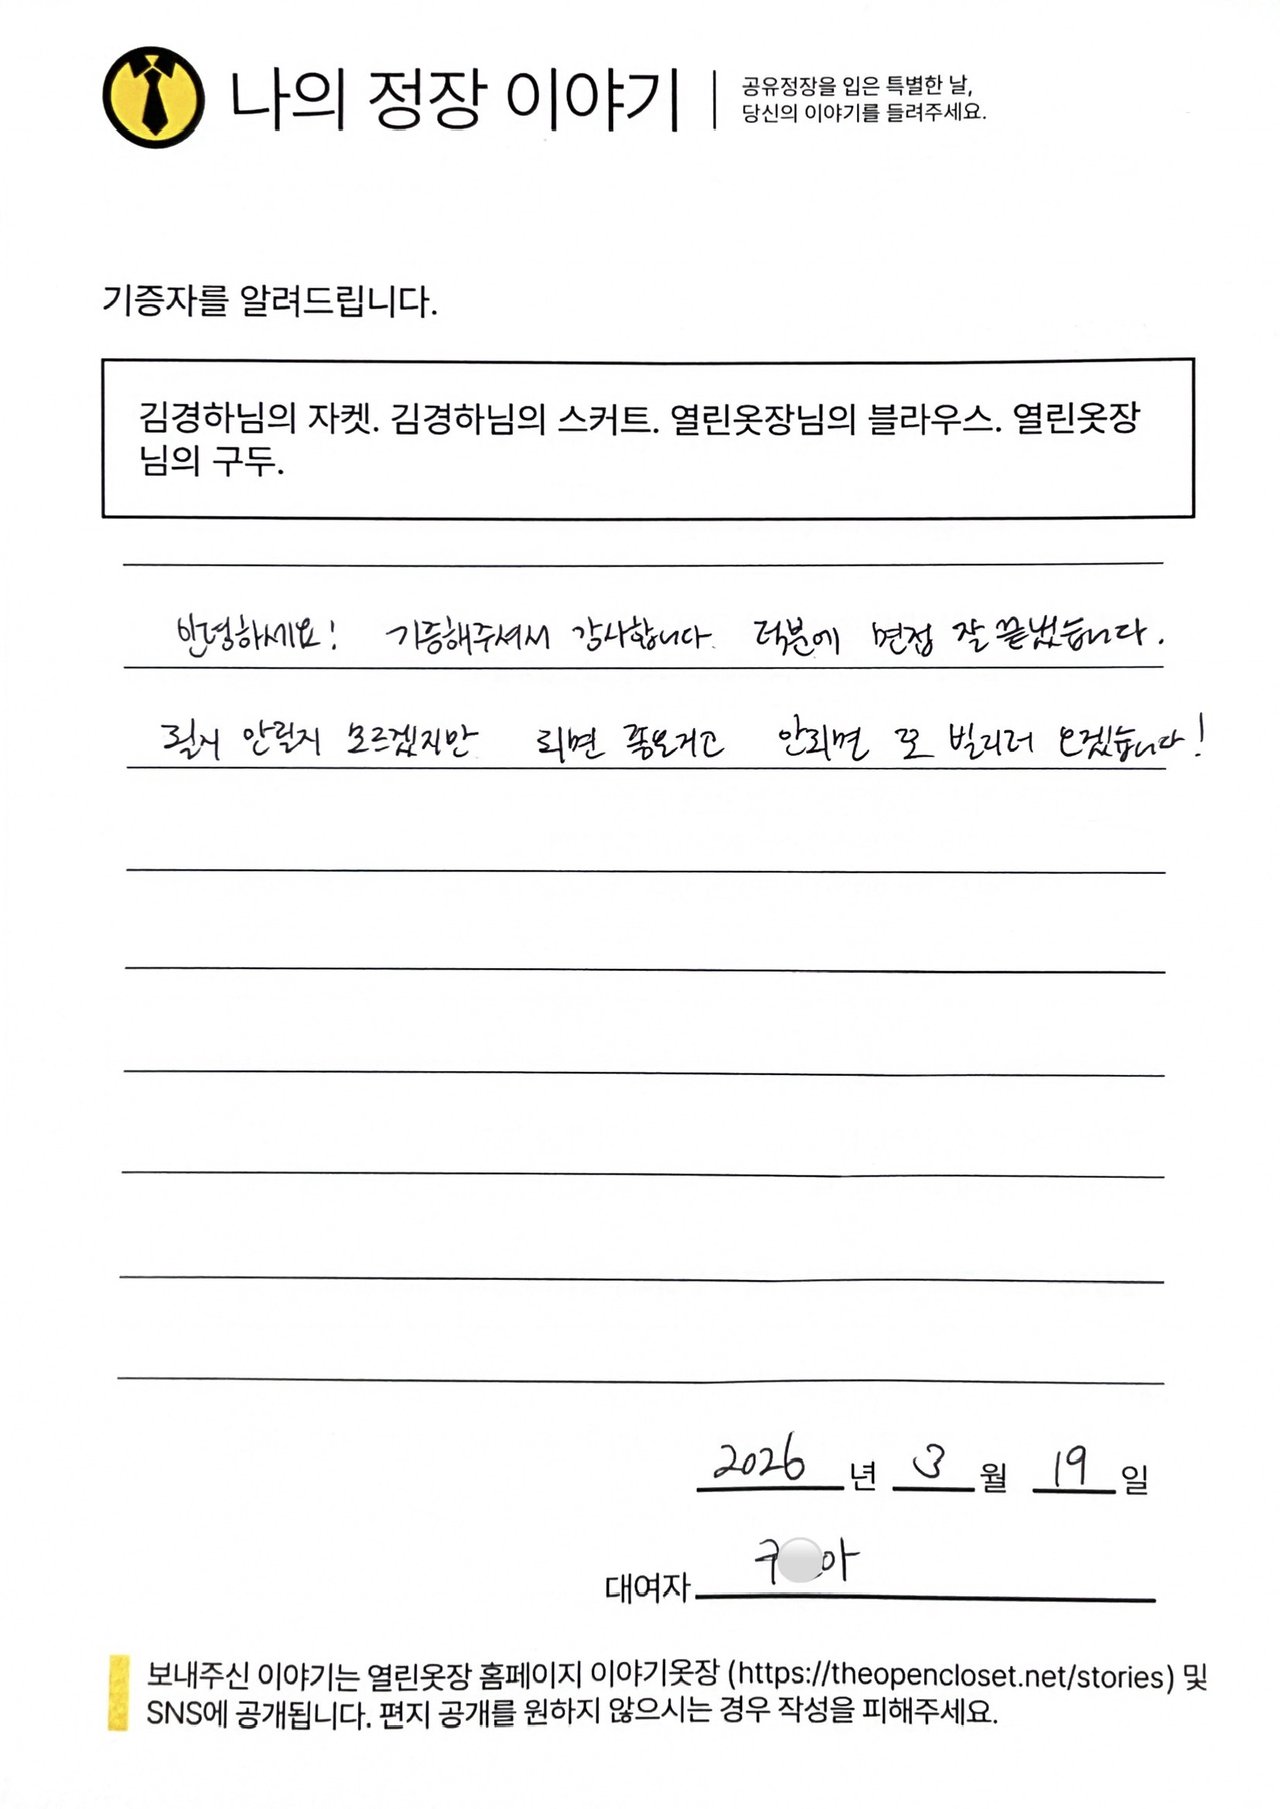 나의 정장 이야기
공유정장을 입은 특별한 날,
당신의 이야기를 들려주세요.
기증자를 알려드립니다.
김경하님의 자켓. 김경하님의 스커트. 열린옷장님의 블라우스. 열린옷장
님의 구두.
안녕하세요! 기증해주셔서 감사합니다. 덕분에 면접 잘 끝냈습니다.
될지 안될지 모르겠지만 되면 좋은거고 안되면 또 빌리러 오겠습니다!
2026 년 3 월 19 일
대여자 구 아
보내주신 이야기는 열린옷장 홈페이지 이야기옷장 (https://theopencloset.net/stories) 및
SNS에 공개됩니다. 편지 공개를 원하지 않으시는 경우 작성을 피해주세요.